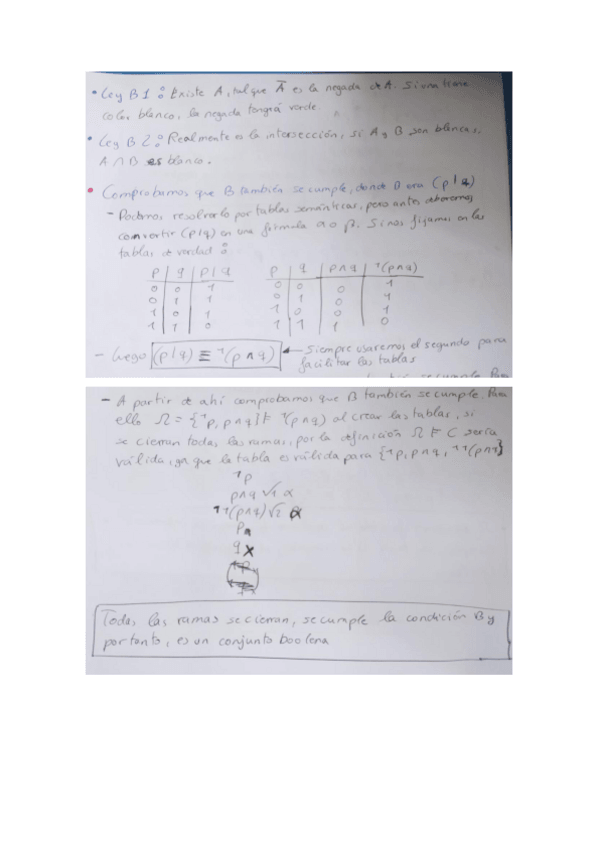 • Ley B1: Existe A, tal que Ā es la negada de A. Si una tiene
color blanco, la negada tendrá verde.
• Ley B2: Realmente es la intersección, si A y B son blancas,
A ∩ B es blanco.
• Comprobamos que B también se cumple, donde B era (p | q)
- Podemos resolverlo por tablas semánticas, pero antes deberemos
convertir (p | q) en una fórmula α o β. Si nos fijamos en las
tablas de verdad:
p | q | p | q p | q | p ∧ q | ¬(p ∧ q)
0 0 1 0 0 0 1
0 1 1 0 1 0 1
1 0 1 1 0 0 1
1 1 0 1 1 1 0
- Luego (p | q) ≡ ¬(p ∧ q) ← Siempre usaremos el segundo para
facilitar las tablas
- A partir de ahí comprobamos que B también se cumple. Para
ello Ω = {¬p, p ∧ q} ⊧ ¬(p ∧ q) al crear las tablas, si
se cierran todas las ramas, por la definición Ω ⊧ C sería
válida, ya que la tabla es válida para {¬p, p ∧ q, ¬¬(p ∧ q)}
¬p
p ∧ q √1 α
¬¬(p ∧ q) √2 α
p
q X
Todas las ramas se cierran, se cumple la condición B y
por tanto, es un conjunto boolena